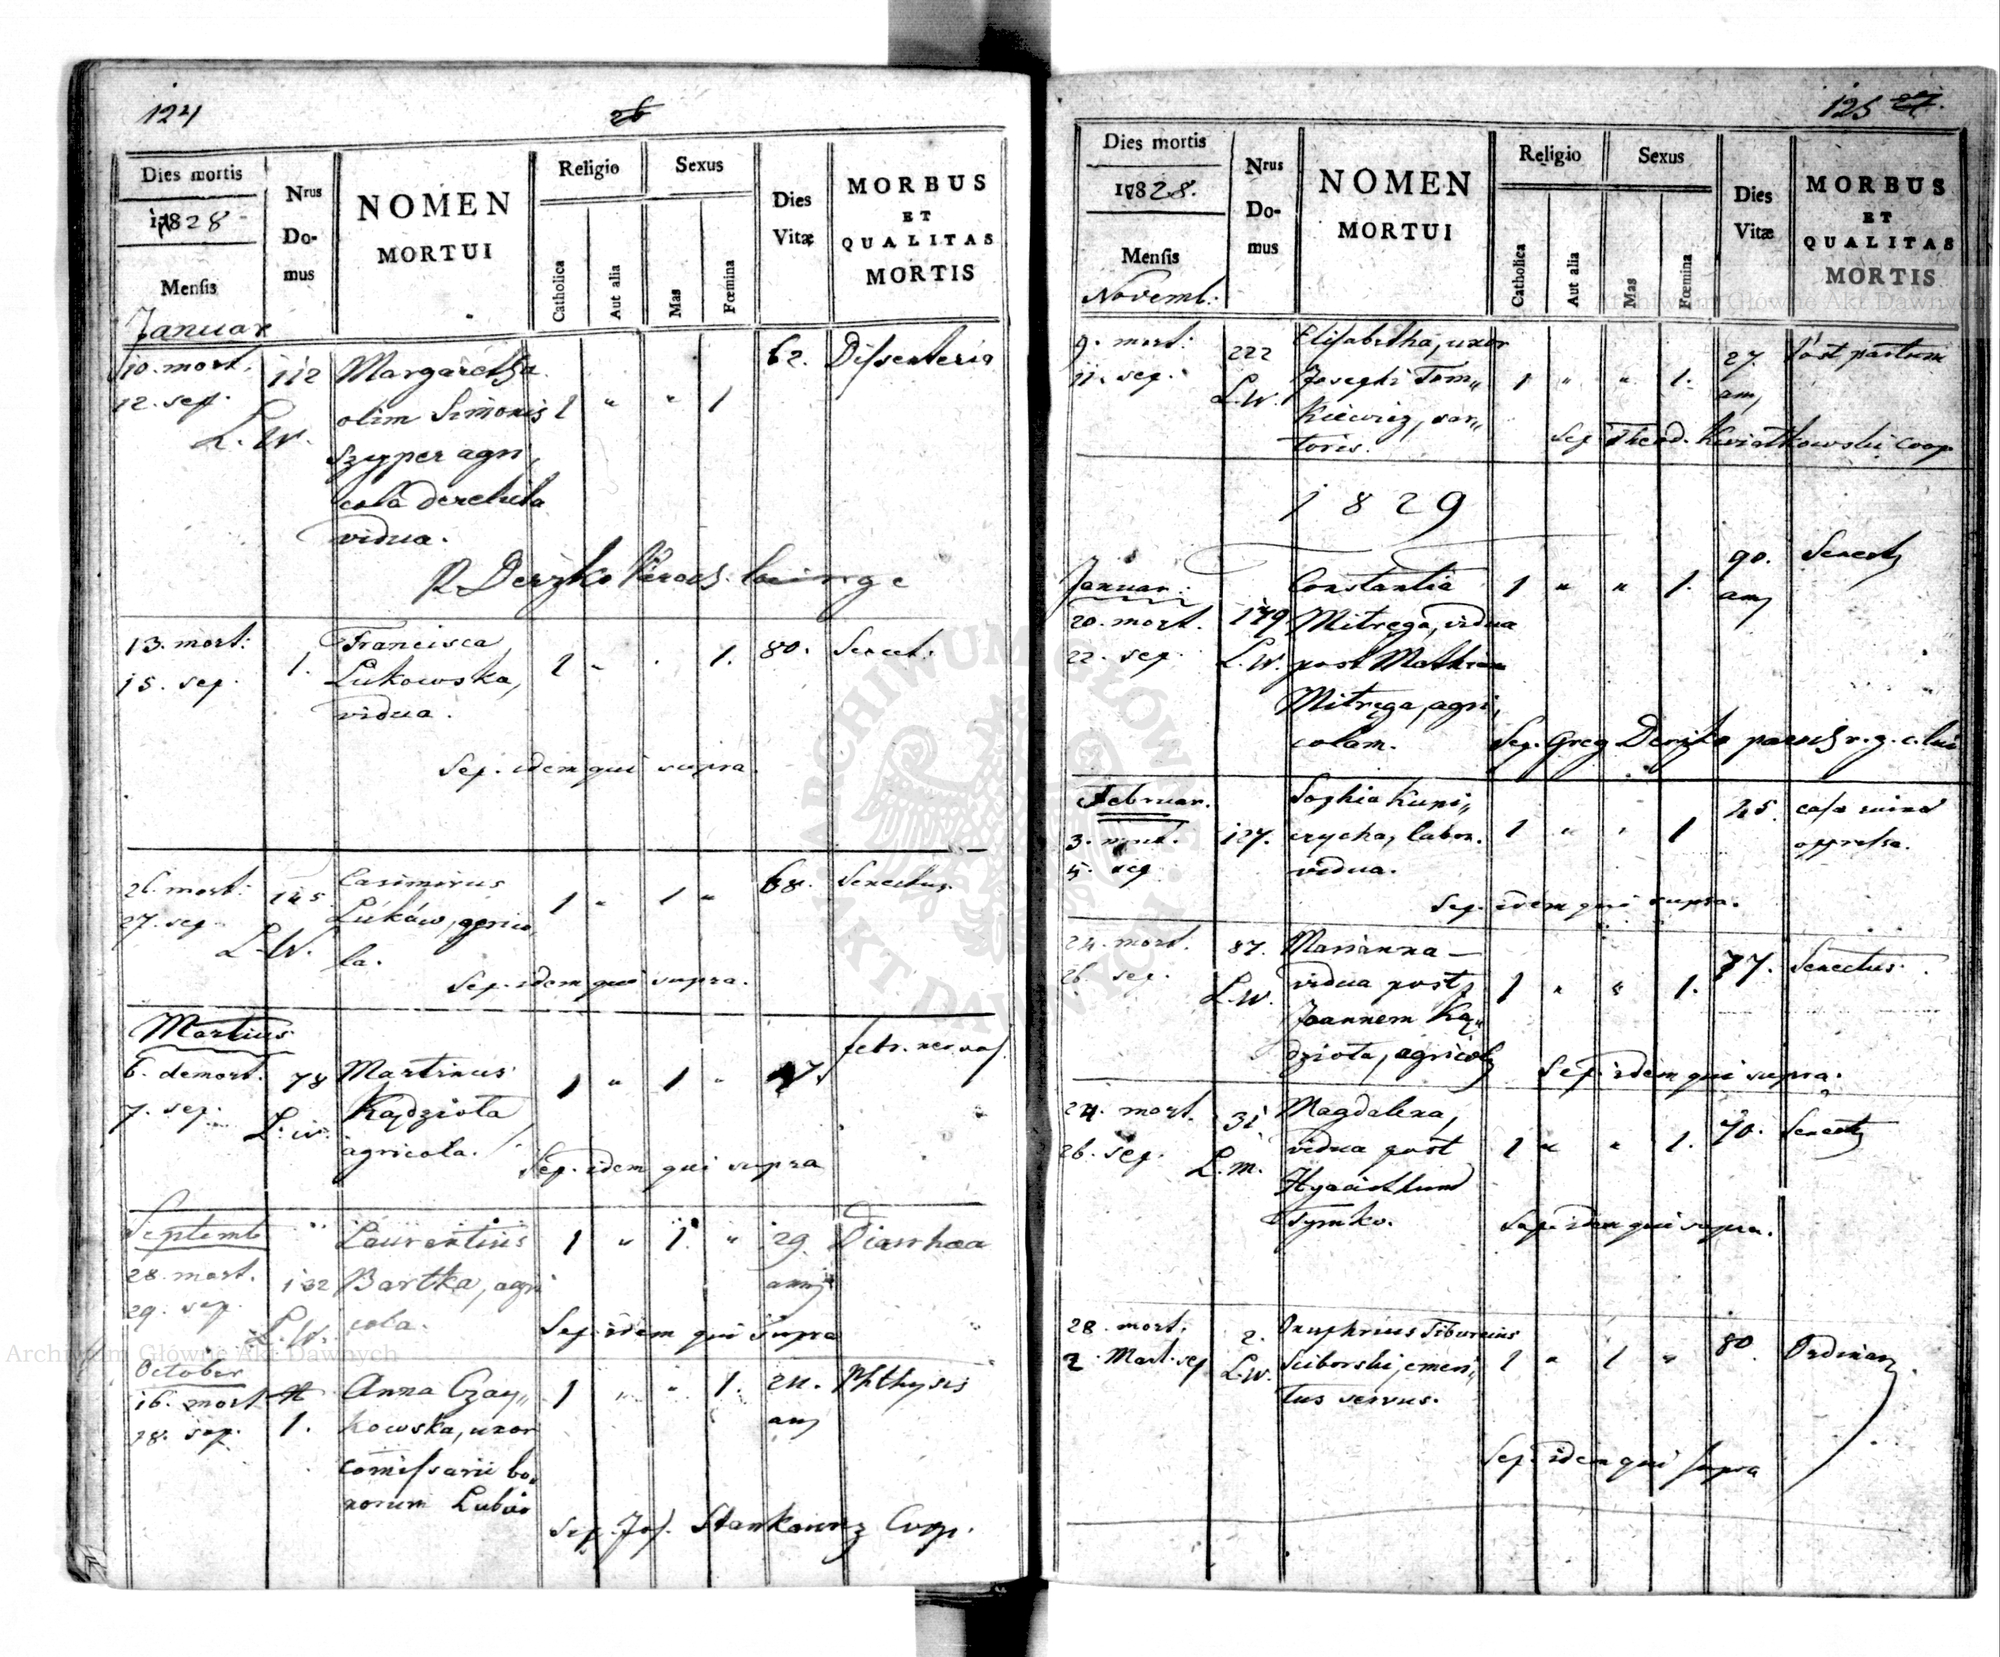 124
26
Dies mortis
1828
Mensis
Nrus
Do-
mus
NOMEN
MORTUI
Religio
Catholica
Aut alia
Sexus
Mas
Fœmina
Dies
Vitæ
MORBUS
ET
QUALITAS
MORTIS
Januar
10. mort. 112 Margaretha 62. Dissenteria
12. sep. olim Simonis 1 " " 1
L. W. Szyper agri
cola derelicta
vidua.
13. mort: Francisca 80. Senect:
15. sep. 1. Lukowska, 1 " 1.
vidua.
Sep. idem qui supra
26. mort: 125 Casimirus 1 " 1 " 68. Senectus.
27. sep Lúków, agrico
L. W. la.
Sep. idem qui supra.
Martius
6. demort. 78 Martinus 1 " 1 " febr. nervos.
7. sep. L. W. Kądziota
agricola.
Sep. idem qui supra
Septemb " Laurentius 1 " 1. " 29. Diarrhœa
28. mort. 132 Bartka, agri
29. sep. L. W. cola.
Sep. idem qui supra
October
16. mort Anna Czay„ 1 " " 1. 24. Phthysis
18. sep. 1. kowska, uxor
comissarii bo„
norum
Sep. Jos. Stankowicz Coop.
125 27.
Dies mortis
1828.
Mensis
Novemb:
Nrus
Do-
mus
NOMEN
MORTUI
Religio
Catholica
Aut alia
Sexus
Mas
Fœmina
Dies
Vitæ
MORBUS
ET
QUALITAS
MORTIS
9. mort: 222 Elisabetha, uxor 27. Post partum
11. sep. L. W. Josephi Tom„ 1 " " 1.
kiewicz, sar„
toris.
Sep. Theod. Kwiatkowski coop
1829
Januar: Constantia 1 " " 1. 90. Senect
20. mort. 179 Mitręga, vidua
22. sep. L. W. post Mathiam
Mitręga, agri,
colam.
Sep. Greg Derzko
Februar. Sophia Kuni„ 45 casa ruina
3. mort. 127. czycha, labor. 1 " " 1 oppressa.
5. sep vidua.
Sep. idem qui supra.
24. mort. 87. Marianna — 77. Senectus.
26 sep. L. W. vidua post 1 " " 1.
Joannem Ką„
dziota, agricol
Sep. idem qui supra.
24. mort. 31 Magdalena, 70. Senect
26. sep. L. m. vidua post 1 " " 1.
Hyacinthum
Tymko.
Sep. idem qui supra.
28. mort. 2. Onuphrius Tiburcius 80
2. Mart. sep L. W. Sciborski, emeri„ 1 " 1 " Ordinar
tus servus.
Sep. idem qui supra
ARCHIWUM GŁÓWNE AKT DAWNYCH
Archiwum Główne Akt Dawnych
Archiwum Główne Akt Dawnych